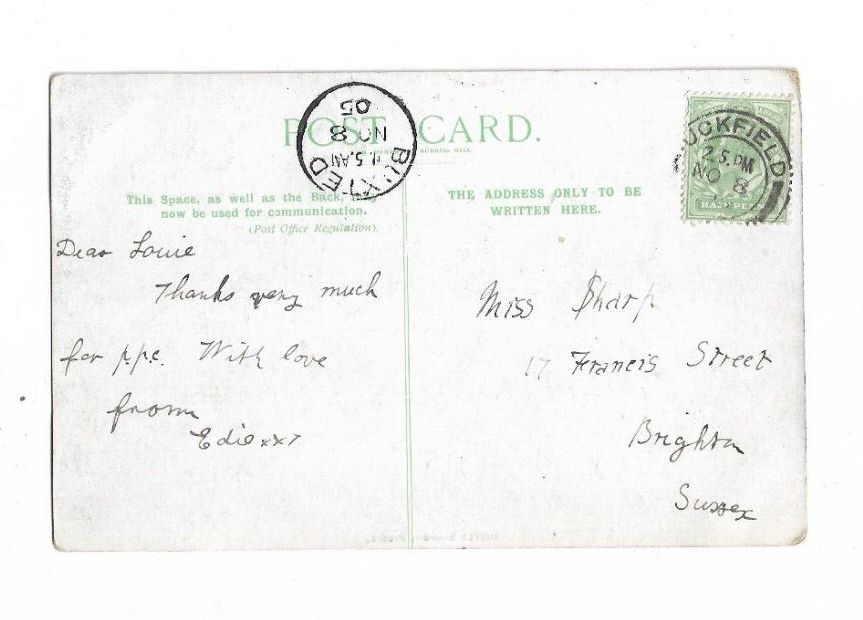 POST CARD.
BUXTED
5. AM
NO 8
05
UCKFIELD
2 5. PM
NO 8
This Space, as well as the Back,
now be used for communication.
(Post Office Regulation).
THE ADDRESS ONLY TO BE
WRITTEN HERE.
Dear Louie
Thanks very much
for p.p.c. With love
from
Edie xx
Miss Sharp
17 Francis Street
Brighton
Sussex